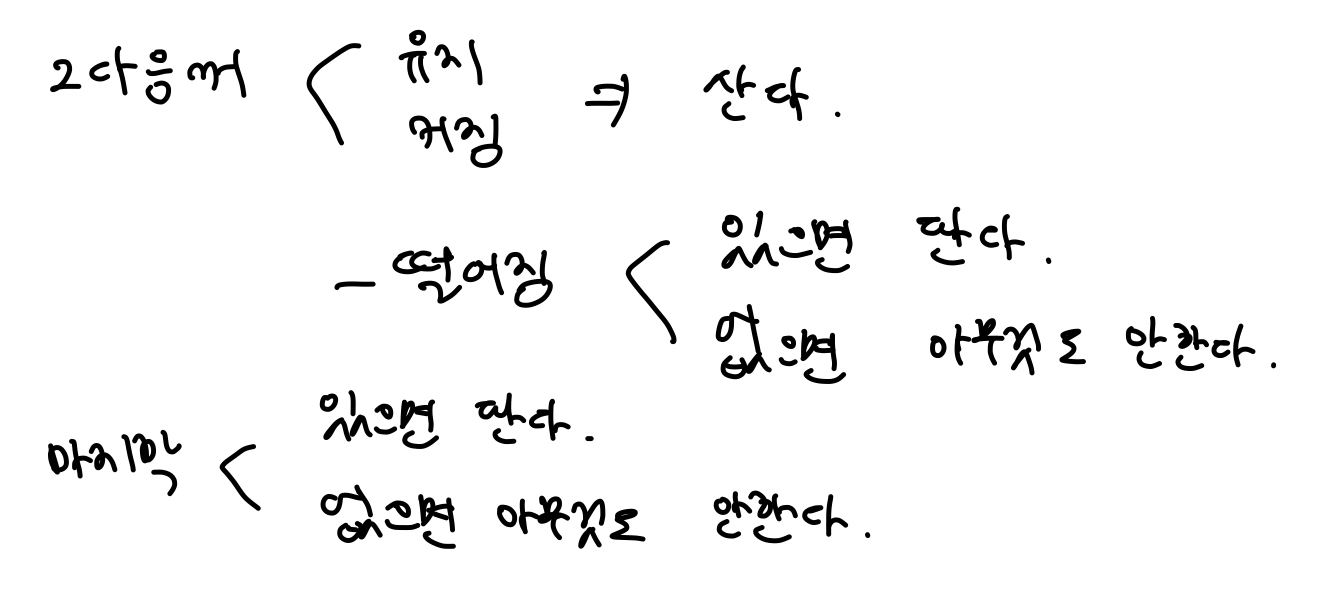 그다음께 유지 ⇒ 산다.
커짐
- 떨어짐 있으면 판다.
없으면 아무것도 안한다.
마지막 있으면 판다.
없으면 아무것도 안한다.